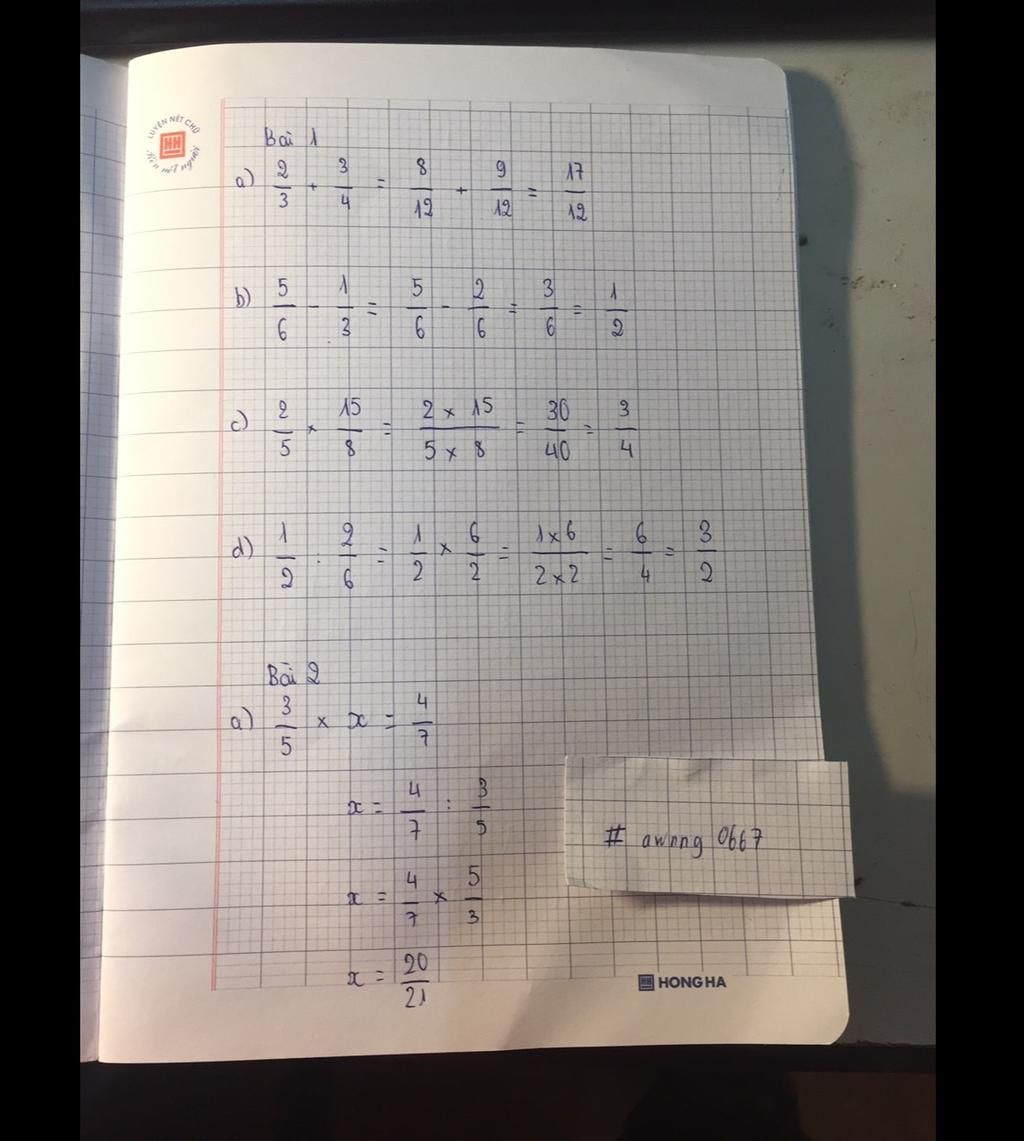 LUYỆN NÉT CHỮ
HH
rèn nết người
Bài 1
a) 2/3 + 3/4 = 8/12 + 9/12 = 17/12
b) 5/6 - 1/3 = 5/6 - 2/6 = 3/6 = 1/2
c) 2/5 × 15/8 = 2 × 15/5 × 8 = 30/40 = 3/4
d) 1/2 : 2/6 = 1/2 × 6/2 = 1×6/2×2 = 6/4 = 3/2
Bài 2
a) 3/5 × x = 4/7
x = 4/7 : 3/5
x = 4/7 × 5/3
x = 20/21
# awnng 0667
HONG HA